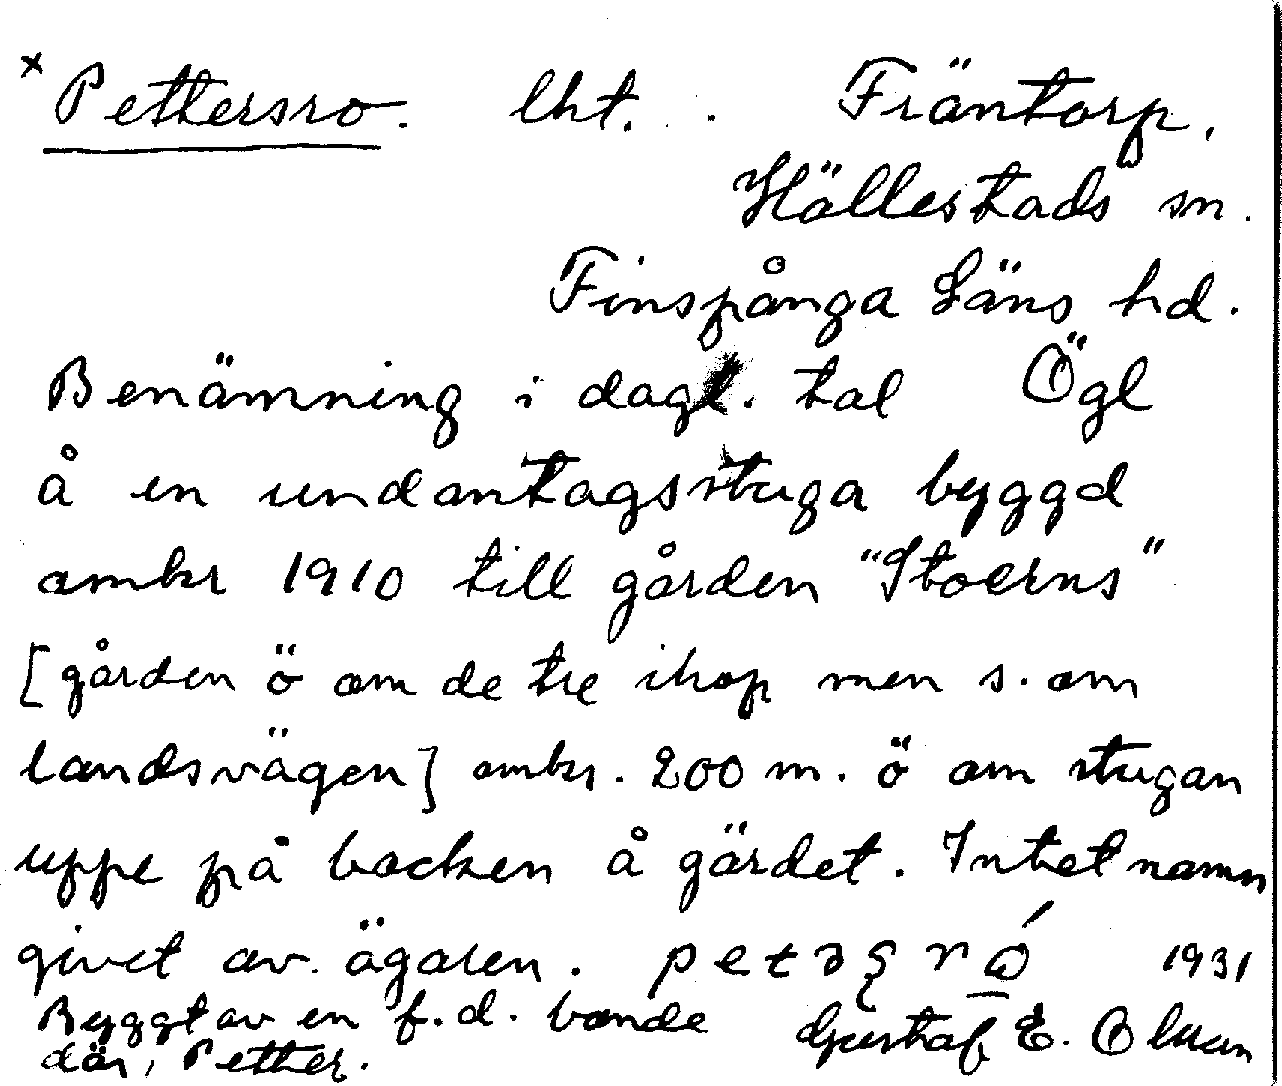 x Pettersro. lht. . Fräntorp.
Hällestads sn.
Finspånga Läns hd.
Benämning i dagl. tal Ögl
å en undantagsstuga byggd
omkr 1910 till gården "Storrns"
[gården ö om de tre ihop men s. om
landsvägen] omkr. 200 m. ö om stugan
uppe på backen å gärdet. Intet namn
givet av ägaren. 1931
Byggt av en f.d. bonde Gustaf E. Olsson
där, Petter.